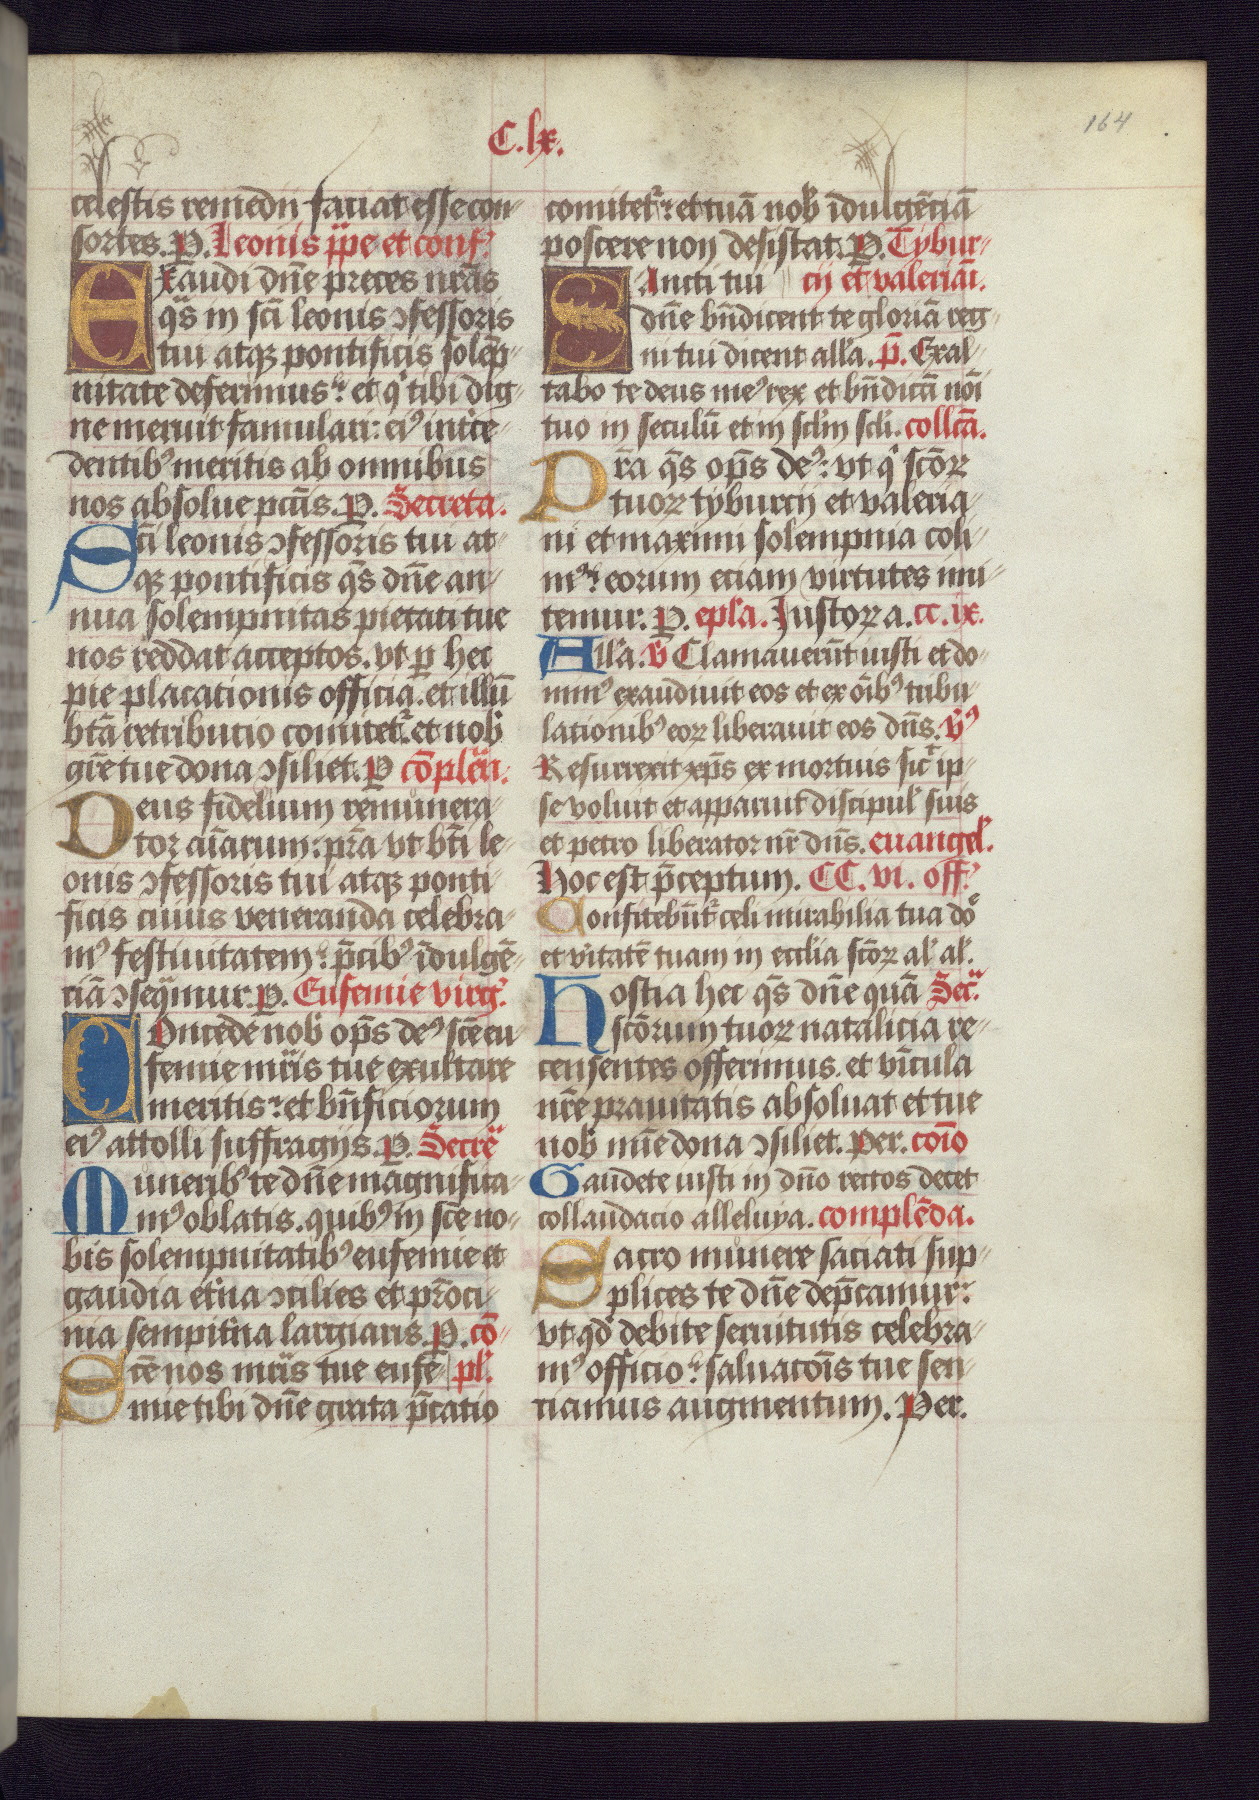 C.lx.
164
celestis remedii faciat esse con-
sortes. P. Leonis ppe et conf.
Exaudi dn̄e preces nr̄as
qs̄ in sc̄i leonis ↄfessoris
tui atqꝫ pontificis solēp-
nitate deferimus: et qͥ tibi dig-
ne meruit famulari: eiꝰ int̾ce-
dentibꝰ meritis ab omnibus
nos absolue pc̄tis. P. Secreta.
Sc̄i leonis ↄfessoris tui at-
qꝫ pontificis qs̄ dn̄e an-
nua solempnitas pietati tue
nos reddat acceptos. vt ꝑ hec
pie placationis officia. et illū
bt̄a retributio comitet᷑. et nob̄
gr̄e tue dona ↄsiliet. P cōplen̄.
Deus fidelium remunera-
tor aīarum: pr̄a vt bt̄i le-
onis ↄfessoris tui atqꝫ ponti-
ficis cuius veneranda celebra-
mꝰ festiuitatem: p̄cibꝰ īdulgē-
ciā ↄseqͣmur. P. Eufemie virg.
Concede nob̄ op̄s deꝰ sc̄e eu-
femie mr̄is tue exultare
meritis: et bn̄ficiorum
eiꝰ attolli suffragijs. P. Secre
Muneribꝰ te dn̄e magnifica-
mꝰ oblatis. quibꝰ in sce no-
bis solempnitatibꝰ eufemie et
gaudia et̾na ↄcilies et pr̄oci-
nia sempit̾na largiaris. P. cō-
Sc̄e nos mr̄is tue eufe- pl.
mie tibi dn̄e grata p̄catio
comitet᷑: et tuā nob̄ īdulgēciā
poscere non desistat. P. Tybur-
Sancti tui cij et valeriāi.
dn̄e bn̄dicent te gloriā reg-
ni tui dicent all'a. p̄. Exal-
tabo te deus meꝰ rex et bn̄dicā nōi
tuo in seculū et in scl'm scl'i. collc̄a.
Pr̄a qs̄ op̄s deꝰ: vt qͥ scōꝝ
tuoꝝ tyburcij et valeria-
ni et maximi solempnia coli-
mꝰ: eorum eciam virtutes imi-
temur. P. epl'a. Justoꝝ a. cc. ix.
All'a. v̄ Clamauerūt iusti et do-
minꝰ exaudiuit eos et ex oībꝰ tribu-
lationibꝰ eoꝝ liberauit eos dn̄s. v̄ꝰ
Resurrexit xp̄s ex mortuis sicͭ ip-
se voluit et apparuit discipul' suis
et petro liberator nr̄ dn̄s. euangel'.
Hoc est p̄ceptum. CC. vi. off.
Confitebūt᷑ celi mirabilia tua dō
et v̾itatē tuam in eccl'ia scōꝝ al' al'.
Hostia hec qs̄ dn̄e quā Sec.
scōrum tuoꝝ natalicia re-
censentes offerimus. et vīcula
nr̄e prauitatis absoluat et tue
nob̄ mīe dona ↄsiliet. Per. coīo
Gaudete iusti in dn̄o rectos decet
collaudacio alleluya. complēda.
Sacro munere saciati sup-
plices te dn̄e dep̄camur:
vt qd̄ debite seruitutis celebra-
mꝰ officio: saluacōis tue sen-
ciamus augmentum. Per.